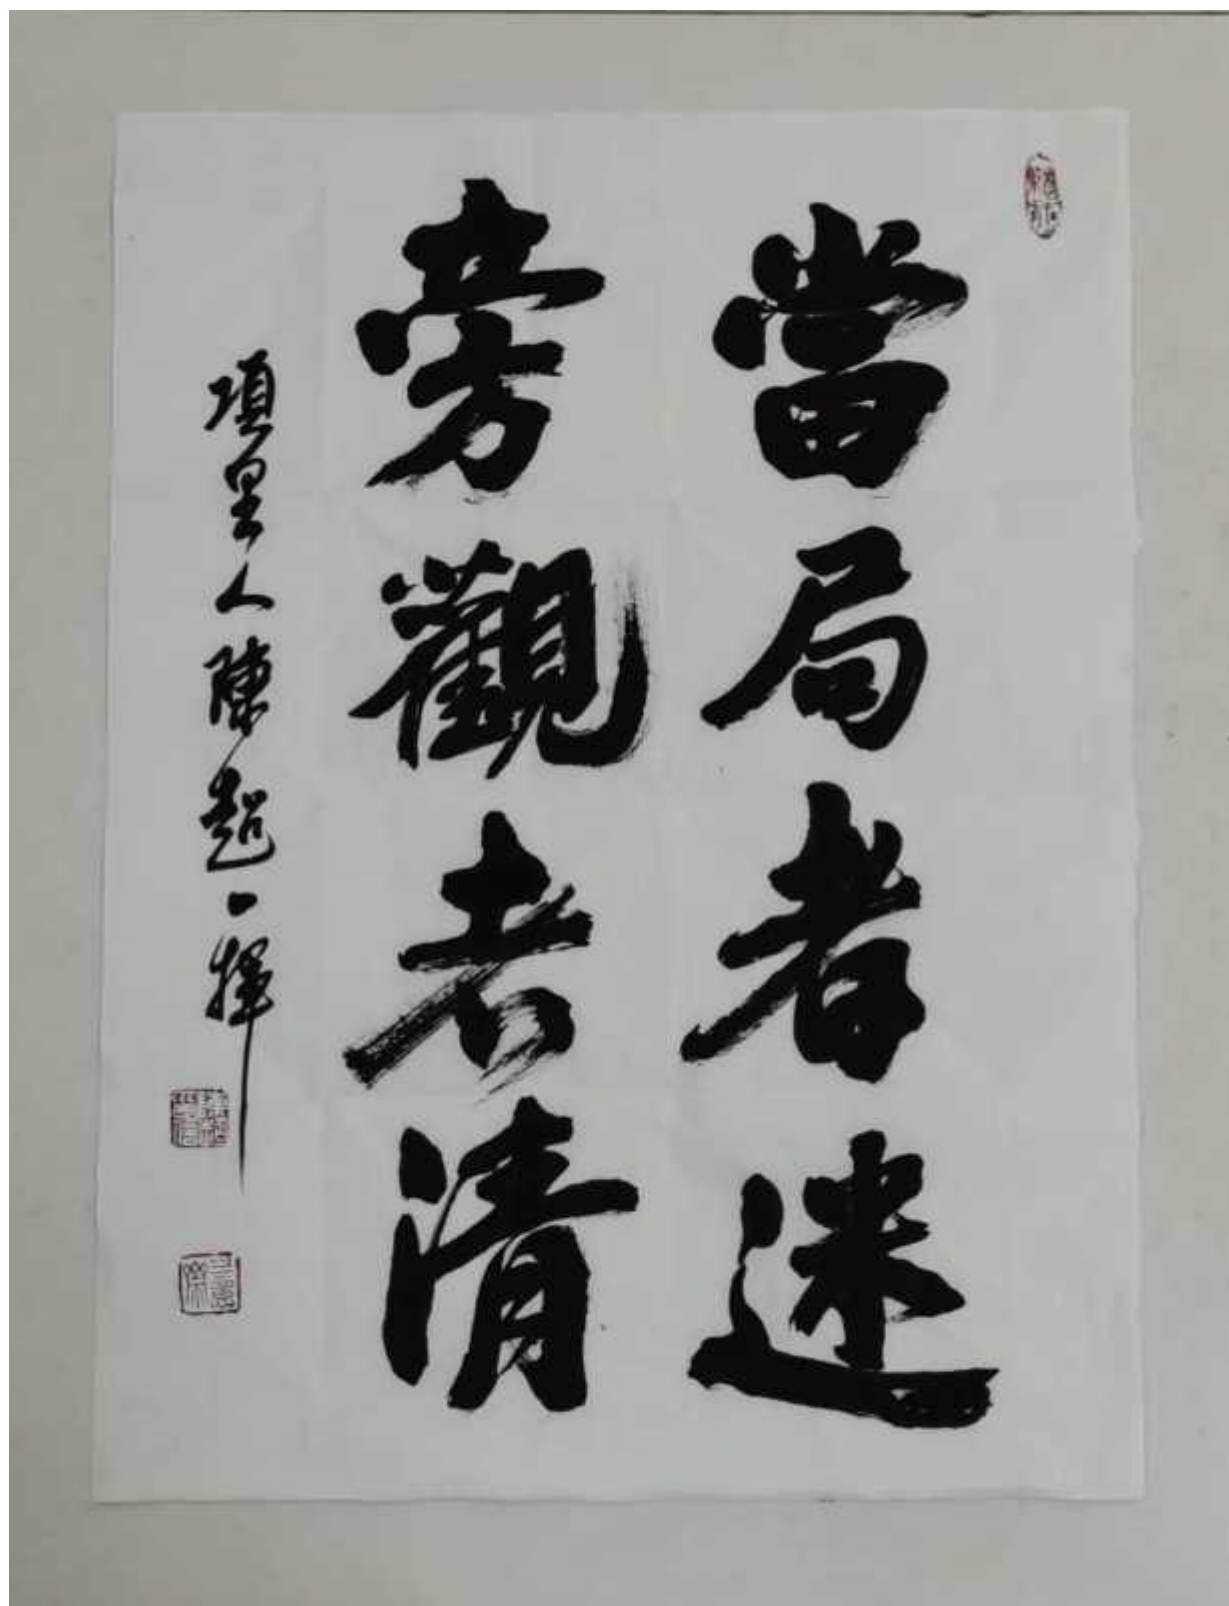 當局者迷
旁觀者清
項里人陳超一揮